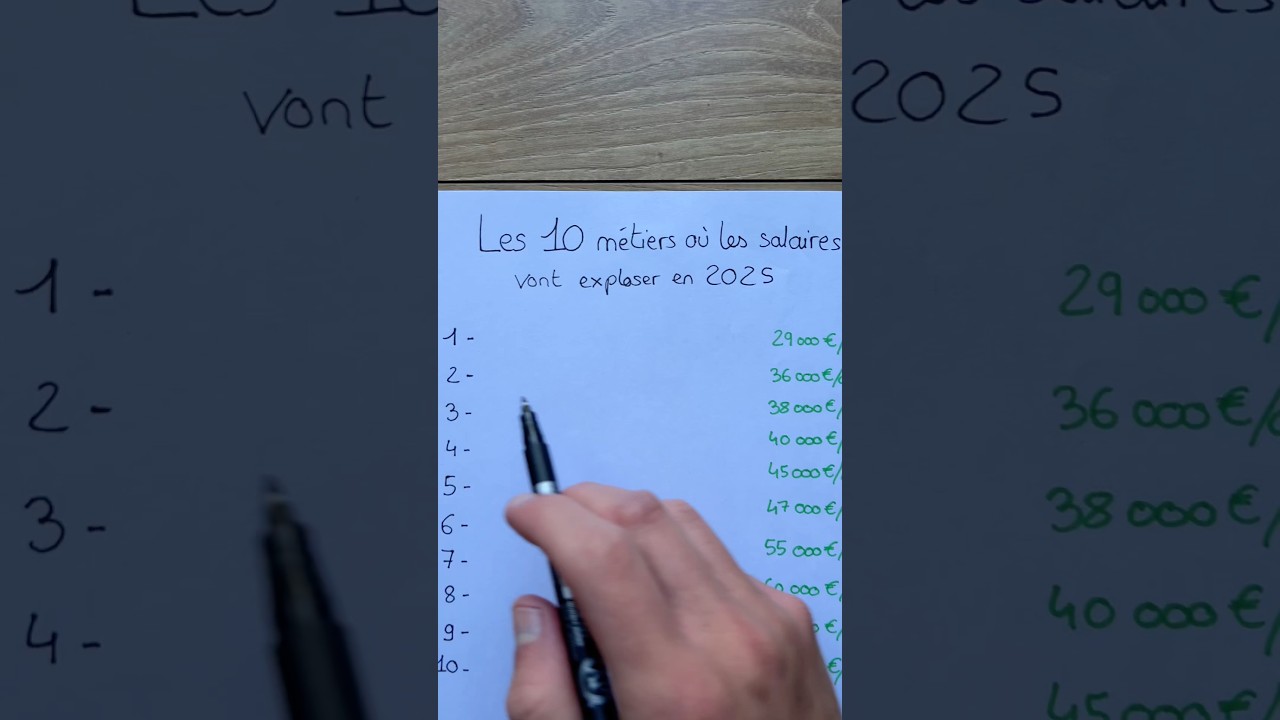 Les 10 métiers où les salaires
vont exploser en 2025
1 - 29 000 €/
2 - 36 000 €/
3 - 38 000 €/
4 - 40 000 €/
5 - 45 000 €/
6 - 47 000 €/
7 - 55 000 €/
8 - 000 €/
9 - €/
10 - €/